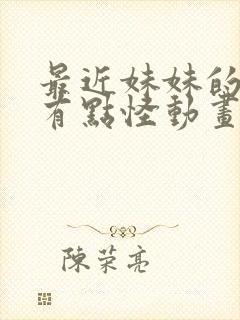 最近妹妹的
有點怪動畫
陳荣亮